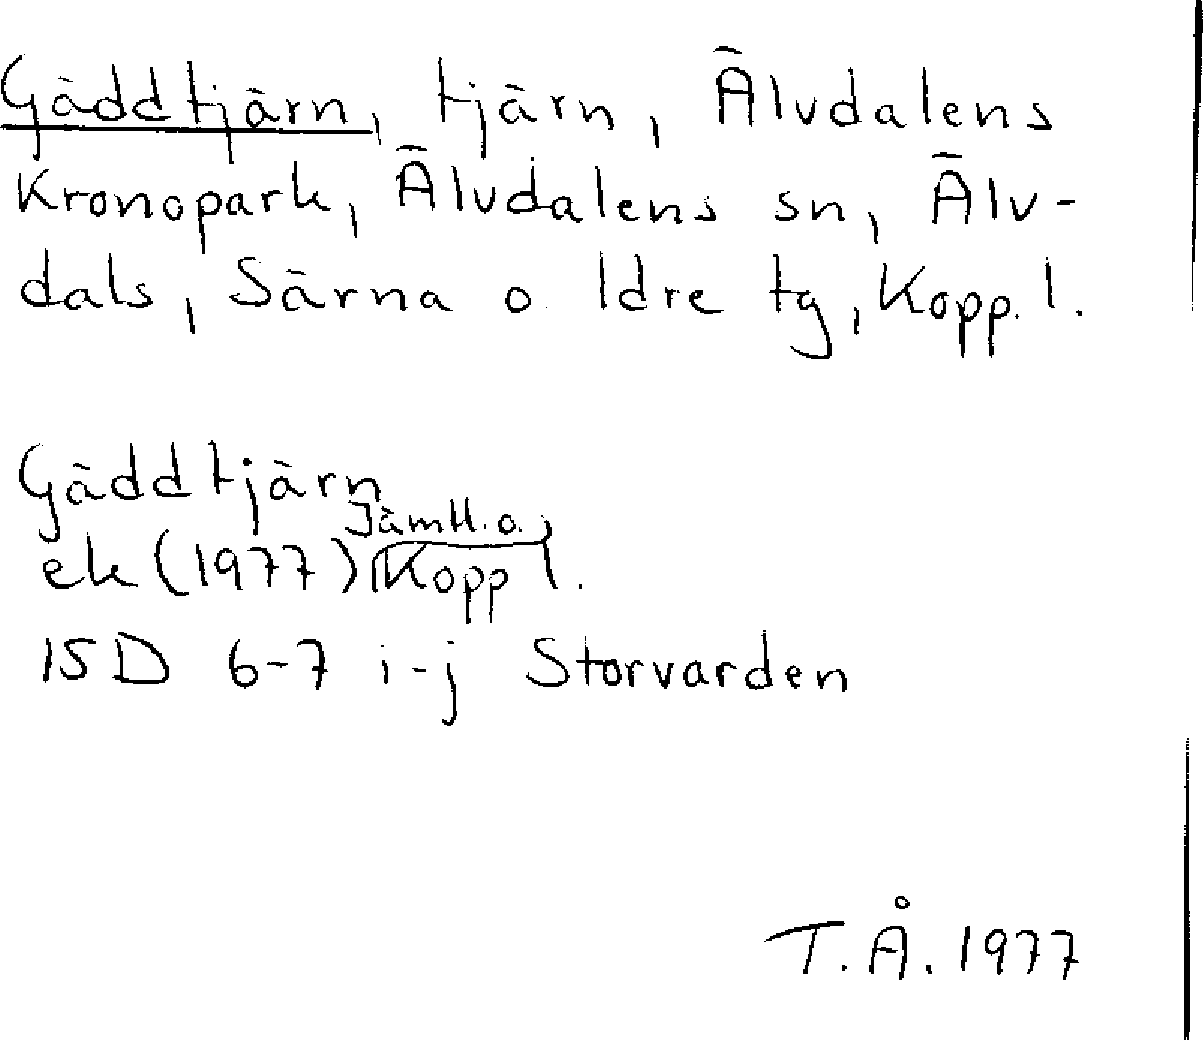 Gäddtjärn, tjärn, Älvdalens
Kronopark, Älvdalens sn, Älv-
dals, Särna o Idre tg, Kopp. l.
Gäddtjärn
Jämtl. o.
ek (1977) Kopp l.
15D 6-7 i-j Storvarden
T.Å. 1977